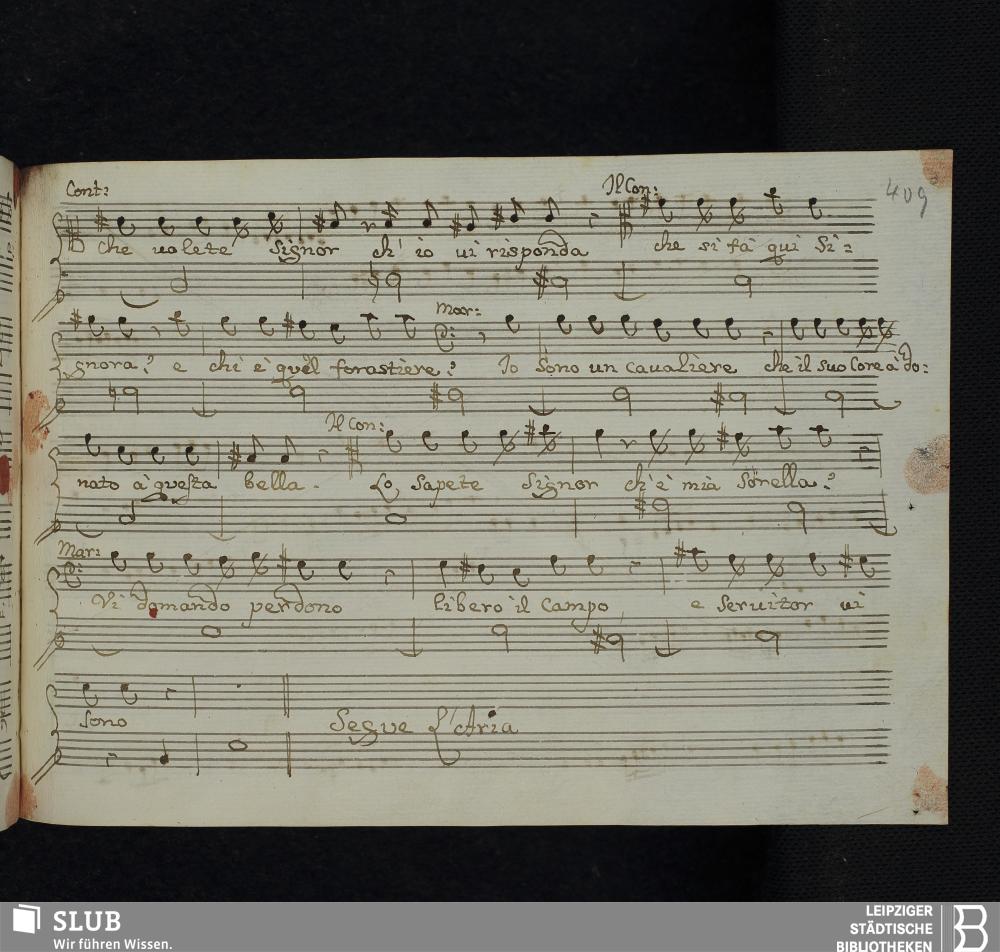 Cont: Il Con: 409
che uolete Signor ch' io ui risponda che si fà qui Si=
Mar:
gnora? e chi è quel forastiere? Io Sono un caualiere che il suo Core à do=
Il Con:
nato à questa bella. Lo Sapete Signor ch' è mià Sorella?
Mar:
Vi domando perdono libero il Campo e Seruitor ui
Sono Segue L'Aria
SLUB
Wir führen Wissen.
LEIPZIGER
STÄDTISCHE
BIBLIOTHEKEN